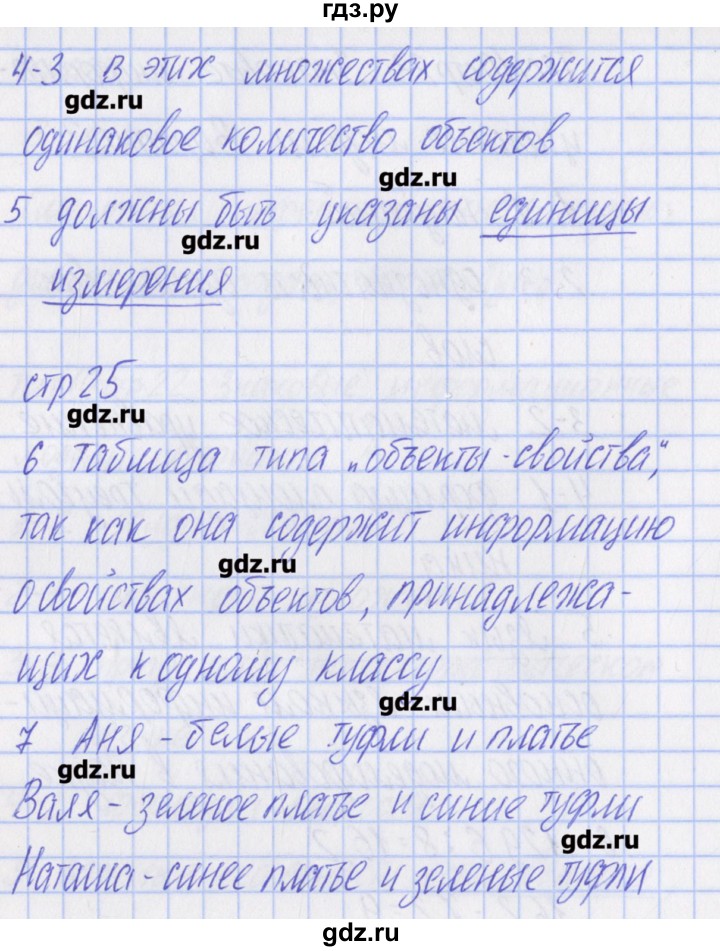 гдз.ру
4-3 в этих множествах содержится
gdz.ru
одинаковое количество объектов
gdz.ru
5 должны быть указаны единицы
gdz.ru
измерения
стр 25
gdz.ru
6 таблица типа „объекты-свойства“,
так как она содержит информацию
gdz.ru
о свойствах объектов, принадлежа-
щих к одному классу
gdz.ru
7 Аня - белые туфли и платье
gdz.ru
Валя - зеленое платье и синие туфли
gdz.ru
Наташа - синее платье и зеленые туфли
gdz.ru